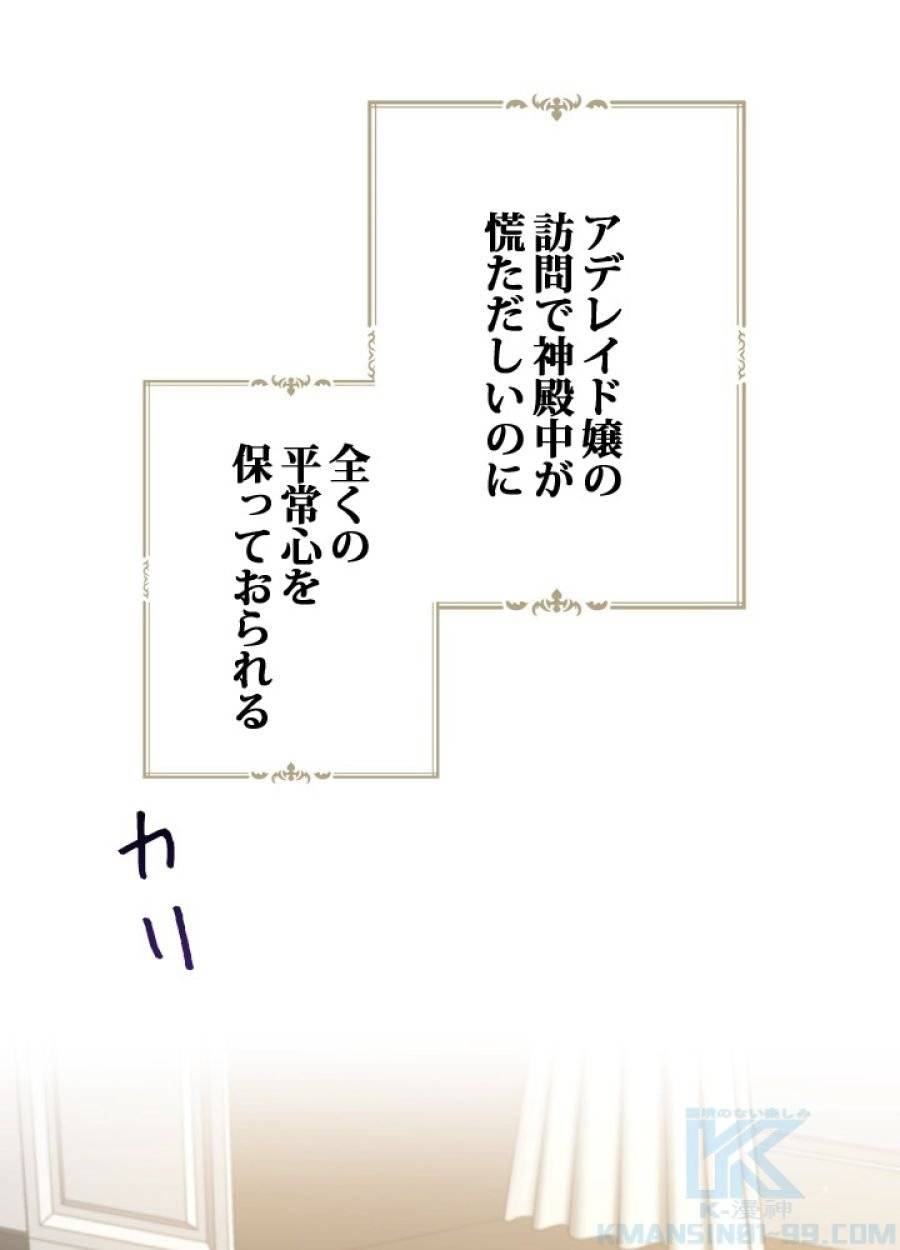 アデレイド嬢の
訪問で神殿中が
慌ただしいのに
全くの
平常心を
保っておられる
カリ
国境のない楽しみ
K-漫神
KMANSIN01-99.COM